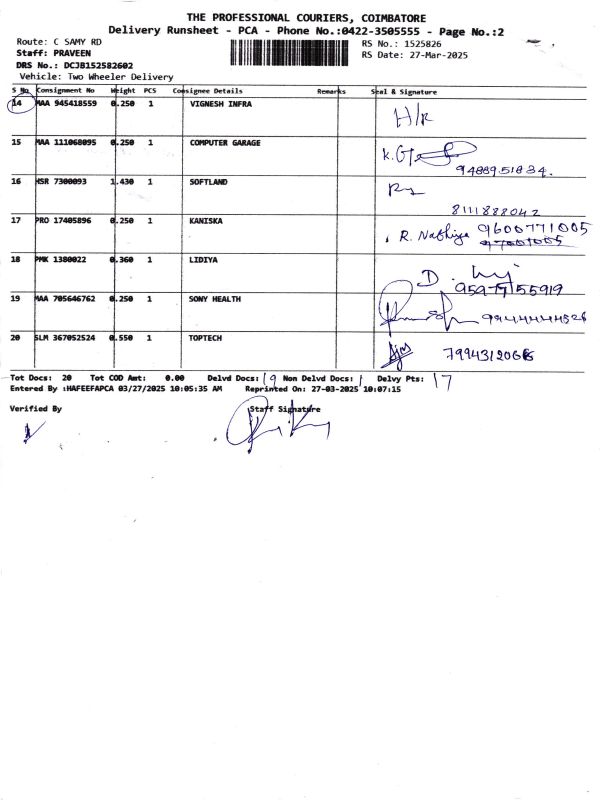 THE PROFESSIONAL COURIERS, COIMBATORE
Delivery Runsheet - PCA - Phone No.:0422-3505555 - Page No.:2
Route: C SAMY RD
RS No.: 1525826
Staff: PRAVEEN
RS Date: 27-Mar-2025
DRS No.: DCJB152582602
Vehicle: Two Wheeler Delivery
S No Consignment No Weight PCS Consignee Details Remarks Seal & Signature
14 MAA 945418559 0.250 1 VIGNESH INFRA H/R
15 MAA 111068095 0.250 1 COMPUTER GARAGE
9488951834.
16 HSR 7300093 1.430 1 SOFTLAND
8111888042
17 PRO 17405896 0.250 1 KANISKA R. Nathiya 9600771005
18 PMK 1380022 0.360 1 LIDIYA
95977155919
19 MAA 705646762 0.250 1 SONY HEALTH
9944444526
20 SLM 367052524 0.550 1 TOPTECH
Tot Docs: 20 Tot COD Amt: 0.00 Delvd Docs: 19 Non Delvd Docs: 1 Delvy Pts: 17
Entered By :HAFEEFAPCA 03/27/2025 10:05:35 AM Reprinted On: 27-03-2025 10:07:15
Verified By Staff Signature